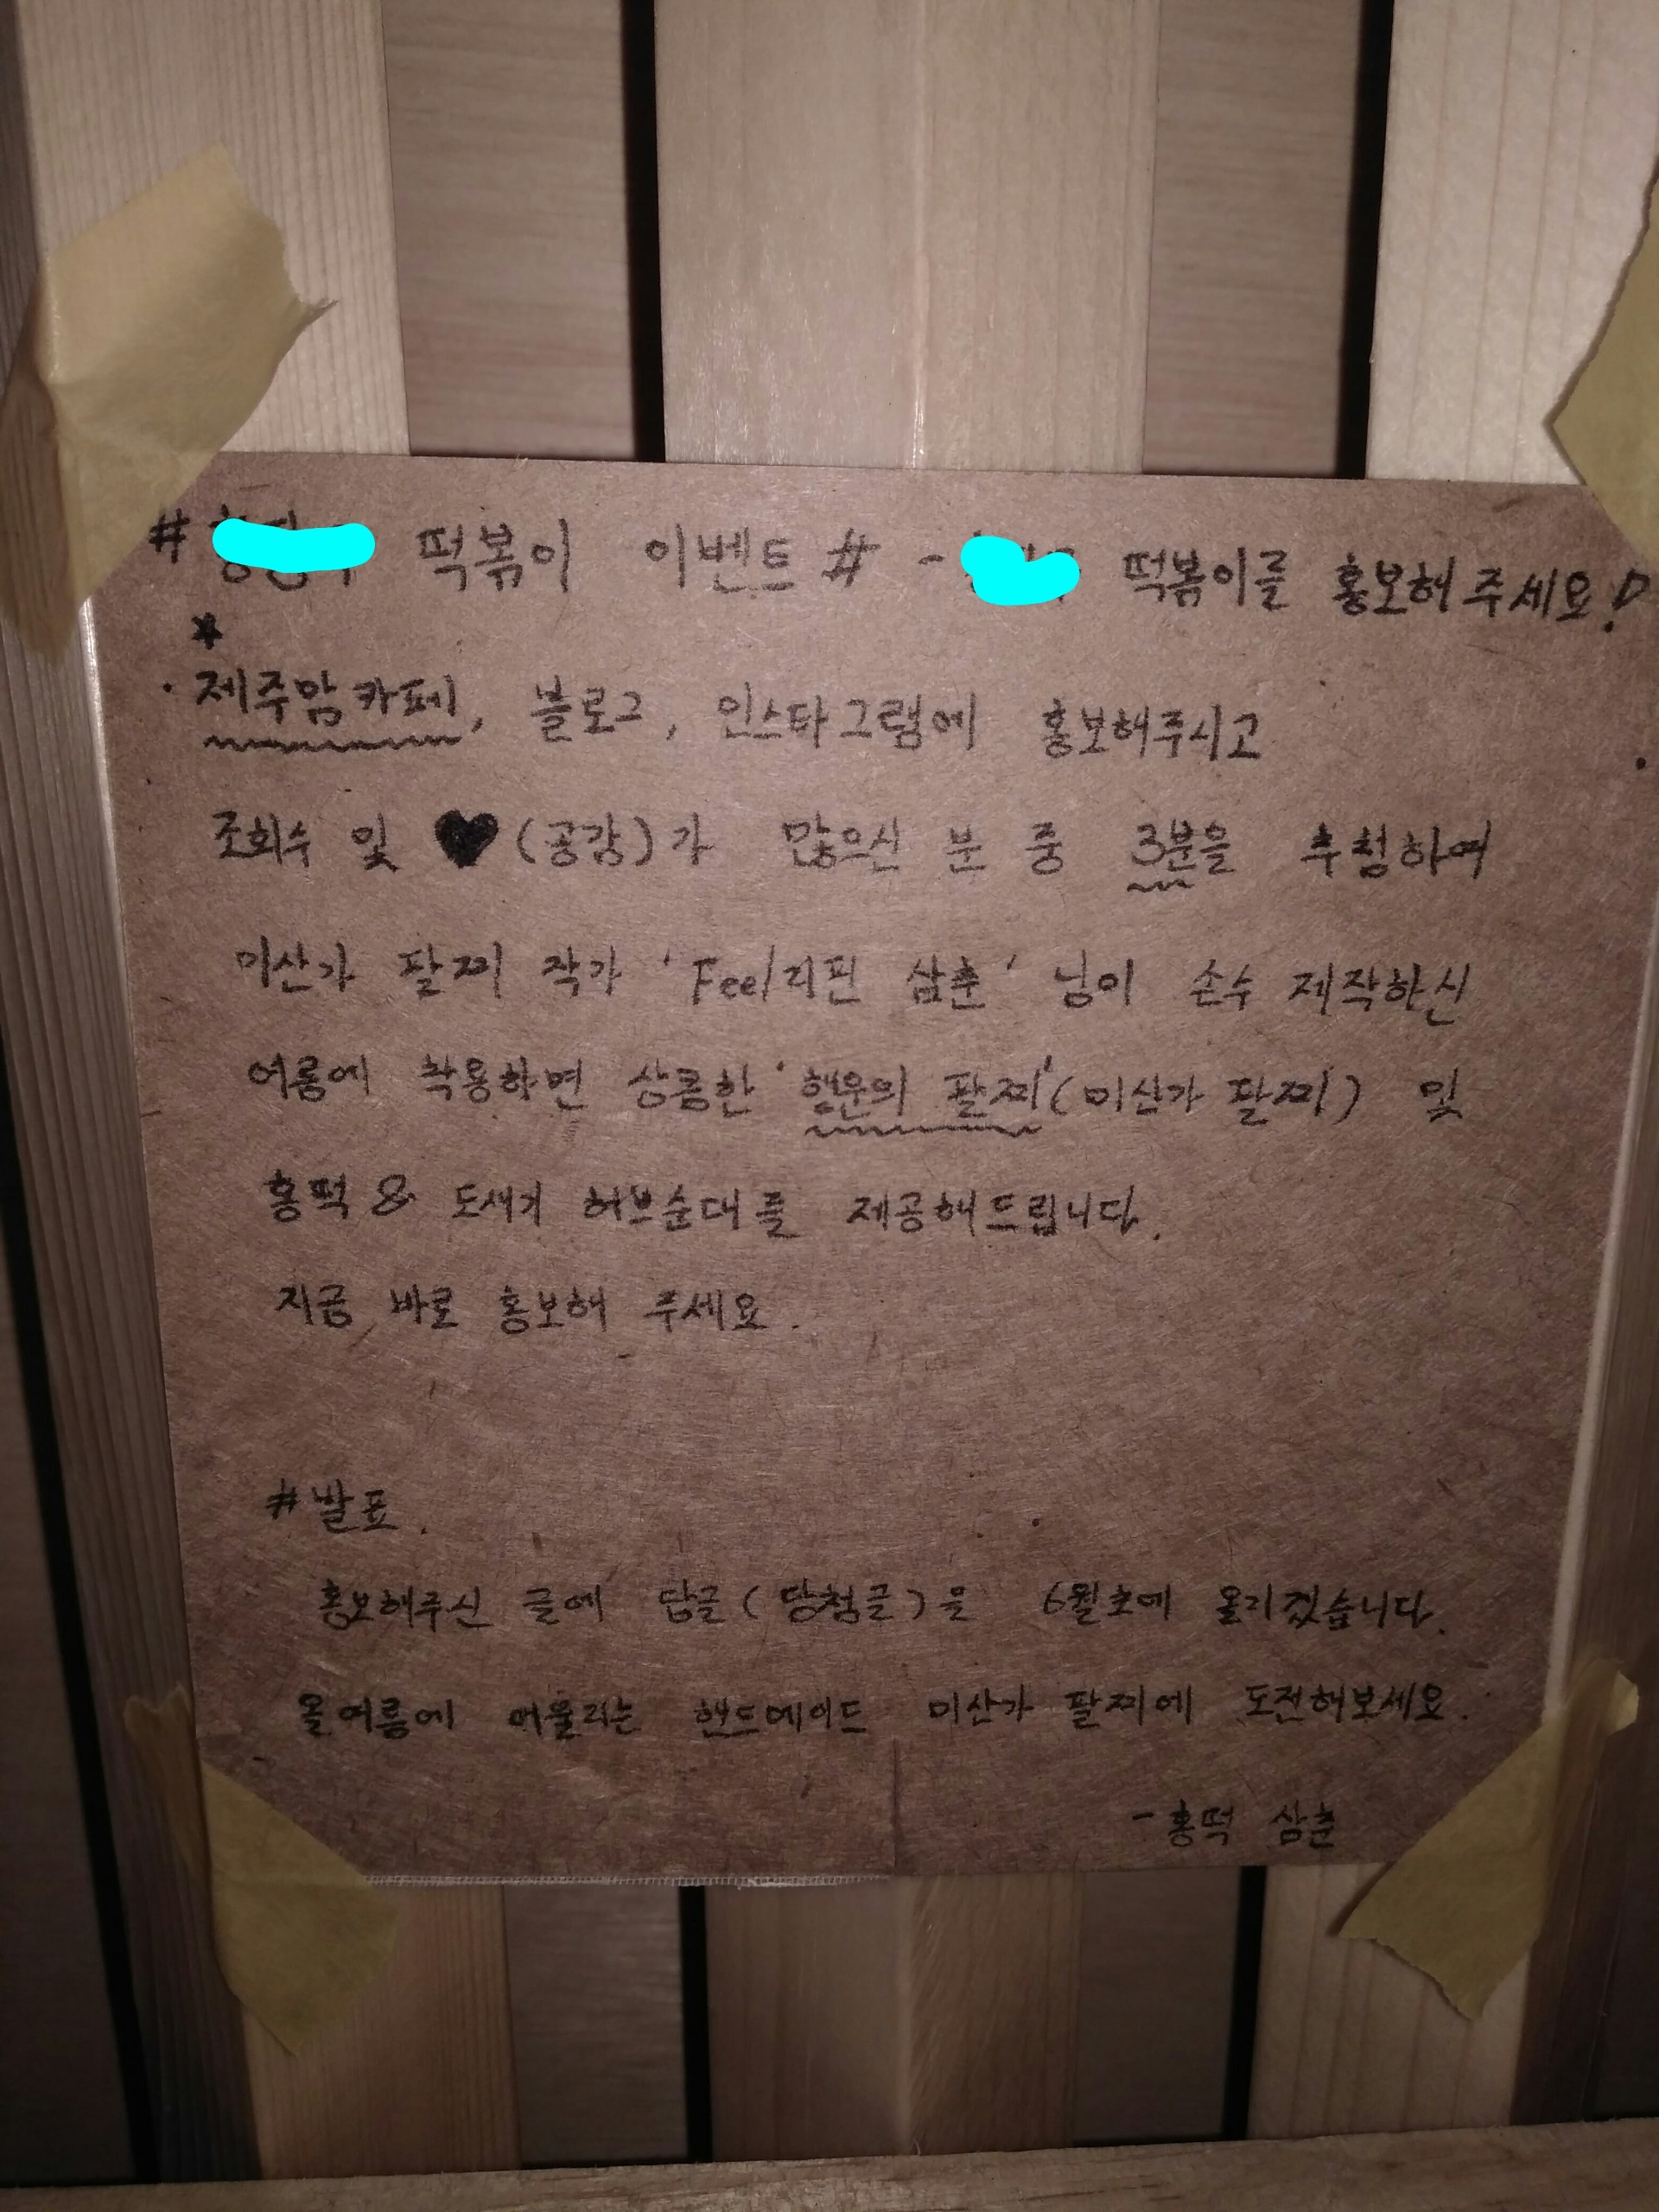 # 떡볶이 이벤트 # - 떡볶이를 홍보해 주세요!
*
· 제주맘카페, 블로그, 인스타그램에 홍보해주시고
조회수 및 ♥(공감)가 많으신 분 중 3분을 추첨하여
미산가 팔찌 작가 'Feel리핀 삼춘' 님이 손수 제작하신
여름에 착용하면 상콤한 '행운의 팔찌'(미산가 팔찌) 및
홍떡 & 도새기 허브순대를 제공해드립니다.
지금 바로 홍보해 주세요.
# 발표.
홍보해주신 글에 답글(당첨글)을 6월초에 올리겠습니다.
올여름에 어울리는 핸드메이드 미산가 팔찌에 도전해보세요.
- 홍떡 삼춘